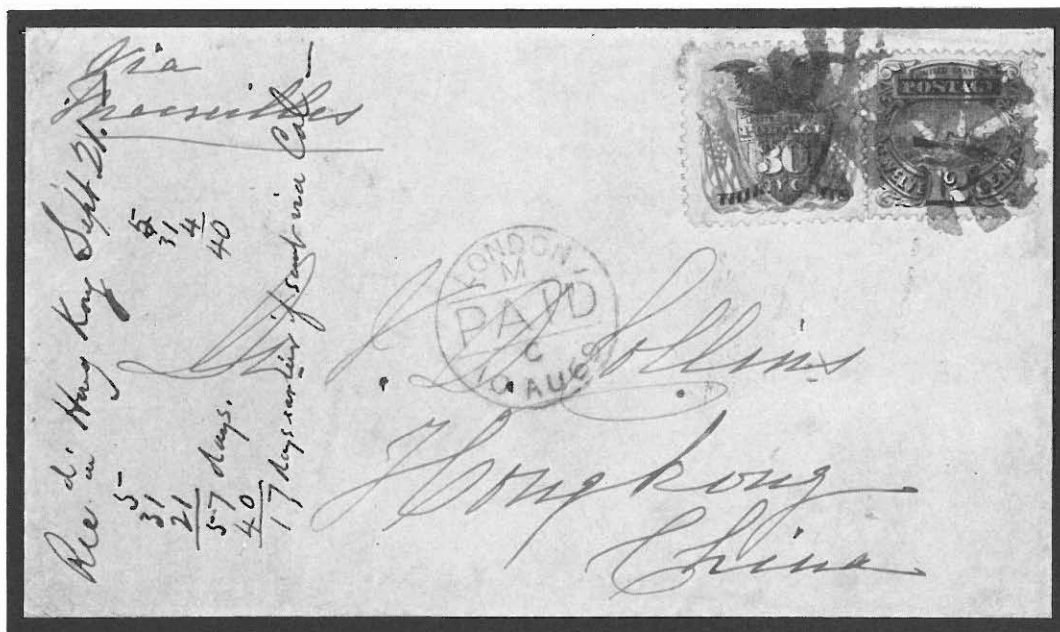 Via
Marseilles
Rec'd in Hong Kong Sept 21.
5
31
21
57 days.
40
17 days earlier if sent via Cal
5
31
4
40
UNITED STATES
POSTAGE
12
30
THIRTY CENTS
LONDON
M
PAID
C
10 AU 69
Collins
Hongkong
China